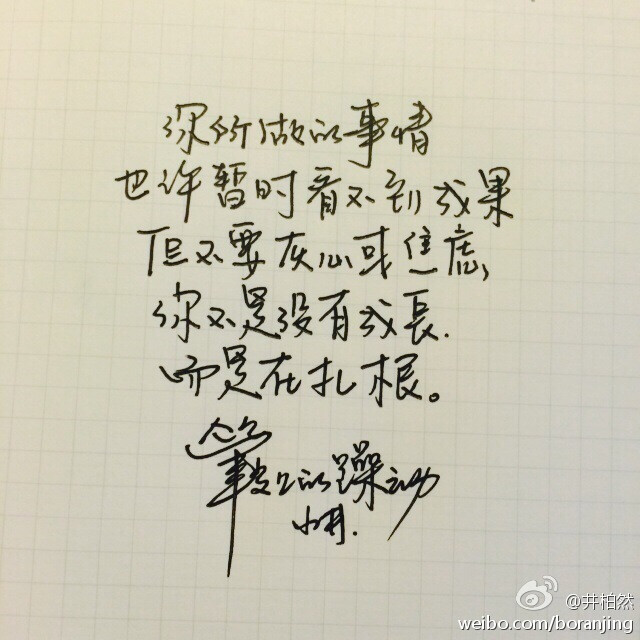 你所做的事情
也许暂时看不到成果
但不要灰心或焦虑，
你不是没有成長.
而是在扎根。
的躁动
小井.
@井柏然
weibo.com/boranjing